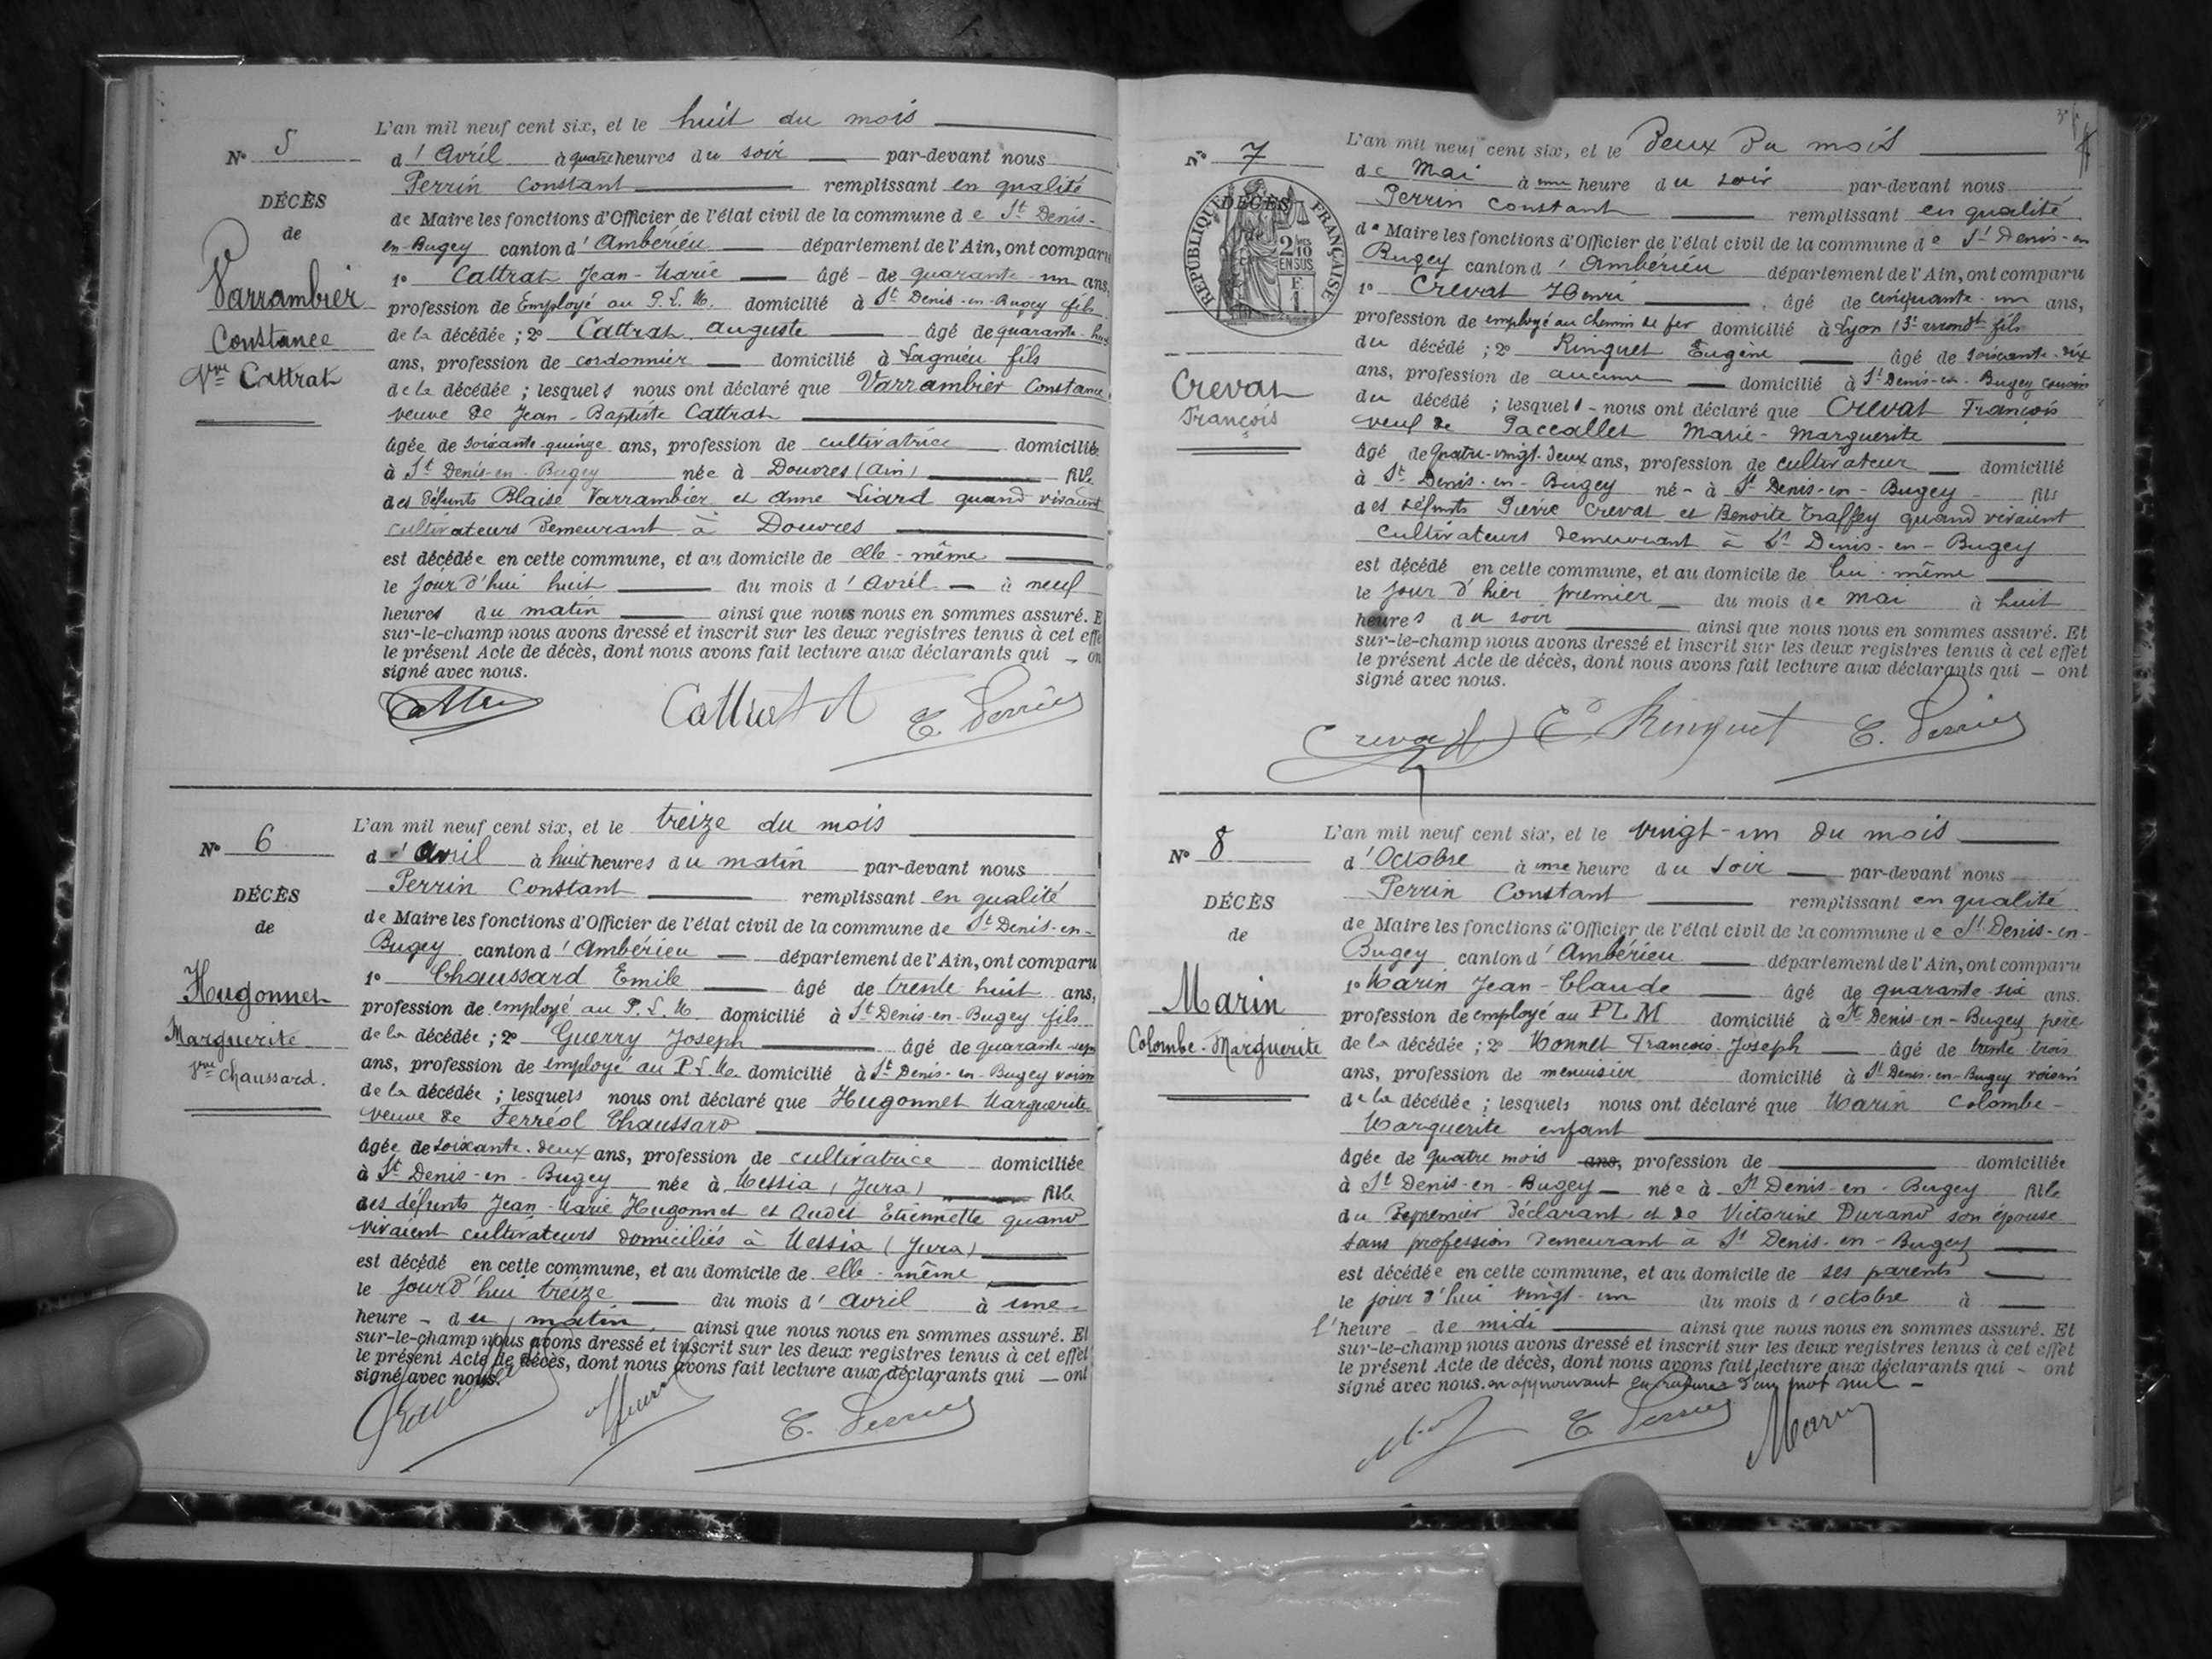 N° 5
DÉCÈS
de
Varrambier
Constance
Vve Cattrat
L'an mil neuf cent six, et le huit du mois
d'Avril à quatre heures du soir par-devant nous
Perrin Constant remplissant en qualité
de Maire les fonctions d'Officier de l'état civil de la commune de St Denis-
en-Bugey canton d'Ambérieu département de l'Ain, ont comparu
1° Cattrat Jean-Marie âgé de quarante-un ans,
profession de Employé au P.L.M. domicilié à St Denis-en-Bugey fils
de la décédée; 2° Cattrat Auguste âgé de quarante-huit
ans, profession de cordonnier domicilié à Lagnieu fils
de la décédée; lesquels nous ont déclaré que Varrambier Constance
veuve de Jean-Baptiste Cattrat
âgée de soixante-quinze ans, profession de cultivatrice domiciliée
à St Denis-en-Bugey née à Douvres (Ain) fille
des défunts Blaise Varrambier et Anne Liard quand vivaient
cultivateurs demeurant à Douvres
est décédée en cette commune, et au domicile de elle-même
le jour d'hui huit du mois d'Avril à neuf
heures du matin ainsi que nous nous en sommes assuré. E
sur-le-champ nous avons dressé et inscrit sur les deux registres tenus à cet effe
le présent Acte de décès, dont nous avons fait lecture aux déclarants qui on
signé avec nous.
Cattrat A C. Perrin
N° 6
DÉCÈS
de
Hugonnet
Marguerite
Vve Chaussard.
L'an mil neuf cent six, et le treize du mois
d'Avril à huit heures du matin par-devant nous
Perrin Constant remplissant en qualité
de Maire les fonctions d'Officier de l'état civil de la commune de St Denis-en-
Bugey canton d'Ambérieu département de l'Ain, ont comparu
1° Chaussard Emile âgé de trente huit ans,
profession de employé au P.L.M. domicilié à St Denis-en-Bugey fils
de la décédée; 2° Guerry Joseph âgé de quarante-sept
ans, profession de employé au P.L.M. domicilié à St Denis-en-Bugey voisin
de la décédée; lesquels nous ont déclaré que Hugonnet Marguerite
veuve de Ferréol Chaussard
âgée de soixante-deux ans, profession de cultivatrice domiciliée
à St Denis-en-Bugey née à Messia (Jura) fille
des défunts Jean-Marie Hugonnet et Oudet Etiennette quand
vivaient cultivateurs domiciliés à Messia (Jura)
est décédé en cette commune, et au domicile de elle-même
le jourd'hui treize du mois d'avril à une
heure du matin ainsi que nous nous en sommes assuré. Et
sur-le-champ nous avons dressé et inscrit sur les deux registres tenus à cet effet
le présent Acte de décès, dont nous avons fait lecture aux déclarants qui ont
signé avec nous.
C. Perrin
N° 7
RÉPUBLIQUE FRANÇAISE
DÉCÈS
2/10
EN SUS
F.
1
Crevat
François
L'an mil neuf cent six, et le deux du mois
de Mai à une heure du soir par-devant nous
Perrin Constant remplissant en qualité
de Maire les fonctions d'Officier de l'état civil de la commune de St Denis-en
Bugey canton d'Ambérieu département de l'Ain, ont comparu
1° Crevat Henri âgé de cinquante-un ans,
profession de employé au Chemin de fer domicilié à Lyon (3e arrondt fils
du décédé; 2° Ringuet Eugène âgé de soixante-dix
ans, profession de aucune domicilié à St Denis-en-Bugey cousin
du décédé; lesquels nous ont déclaré que Crevat François
veuf de Paccallet Marie-Marguerite
âgé de quatre-vingt-deux ans, profession de cultivateur domicilié
à St Denis-en-Bugey né à St Denis-en-Bugey fils
des défunts Pierre Crevat et Benoite Traffey quand vivaient
cultivateurs demeurant à St Denis-en-Bugey
est décédé en cette commune, et au domicile de lui-même
le jour d'hier premier du mois de mai à huit
heures du soir ainsi que nous nous en sommes assuré. Et
sur-le-champ nous avons dressé et inscrit sur les deux registres tenus à cet effet
le présent Acte de décès, dont nous avons fait lecture aux déclarants qui ont
signé avec nous.
Crevat E. Ringuet C. Perrin
N° 8
DÉCÈS
de
Marin
Colombe-Marguerite
L'an mil neuf cent six, et le vingt-un du mois
d'Octobre à une heure du soir par-devant nous
Perrin Constant remplissant en qualité
de Maire les fonctions d'Officier de l'état civil de la commune de St Denis-en-
Bugey canton d'Ambérieu département de l'Ain, ont comparu
1° Marin Jean-Claude âgé de quarante-six ans.
profession de employé au PLM domicilié à St Denis-en-Bugey père
de la décédée; 2° Monnet François-Joseph âgé de trente trois
ans, profession de menuisier domicilié à St Denis-en-Bugey voisin
de la décédée; lesquels nous ont déclaré que Marin Colombe-
Marguerite enfant
âgée de quatre mois ans, profession de domiciliée
à St Denis-en-Bugey née à St Denis-en-Bugey fille
du premier déclarant et de Victorine Durand son épouse
sans profession demeurant à St Denis-en-Bugey
est décédée en cette commune, et au domicile de ses parents
le jour d'hui vingt-un du mois d'octobre à
l'heure de midi ainsi que nous nous en sommes assuré. Et
sur-le-champ nous avons dressé et inscrit sur les deux registres tenus à cet effet
le présent Acte de décès, dont nous avons fait lecture aux déclarants qui ont
signé avec nous. en approuvant la rature d'un mot nul
C. Perrin Marin